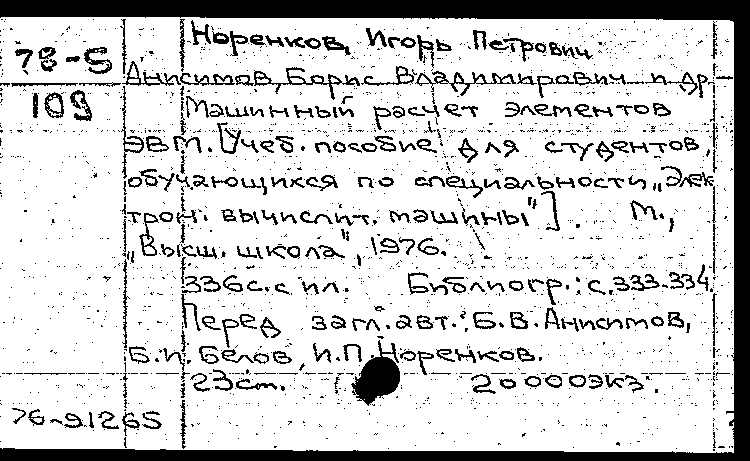 Норенков, Игорь Петрович
78-5
Анисимов, Борис Владимирович и др.
109
Машинный расчет элементов
ЭВМ. [Учеб. пособие для студентов,
обучающихся по специальности „Элек
трон. вычислит. машины"]. М.,
„Высш. школа", 1976.
336с. с ил. Библиогр.: с. 333-334.
Перед загл. авт.: Б.В. Анисимов,
Б.И. Белов, И.П. Норенков.
23см. 20000экз.
76-91265